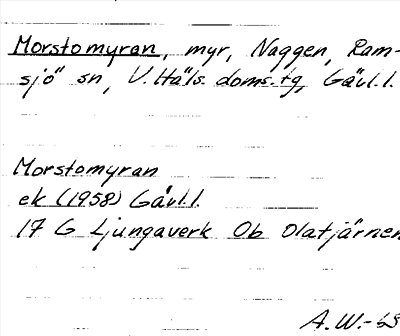 Morstomyran, myr, Naggen, Ram-
sjö sn, V. Häls. doms. tg, Gävl.l.
Morstomyran
ek (1958) Gävl.l.
17 G Ljungaverk Ob Olatjärnen
A.W.-